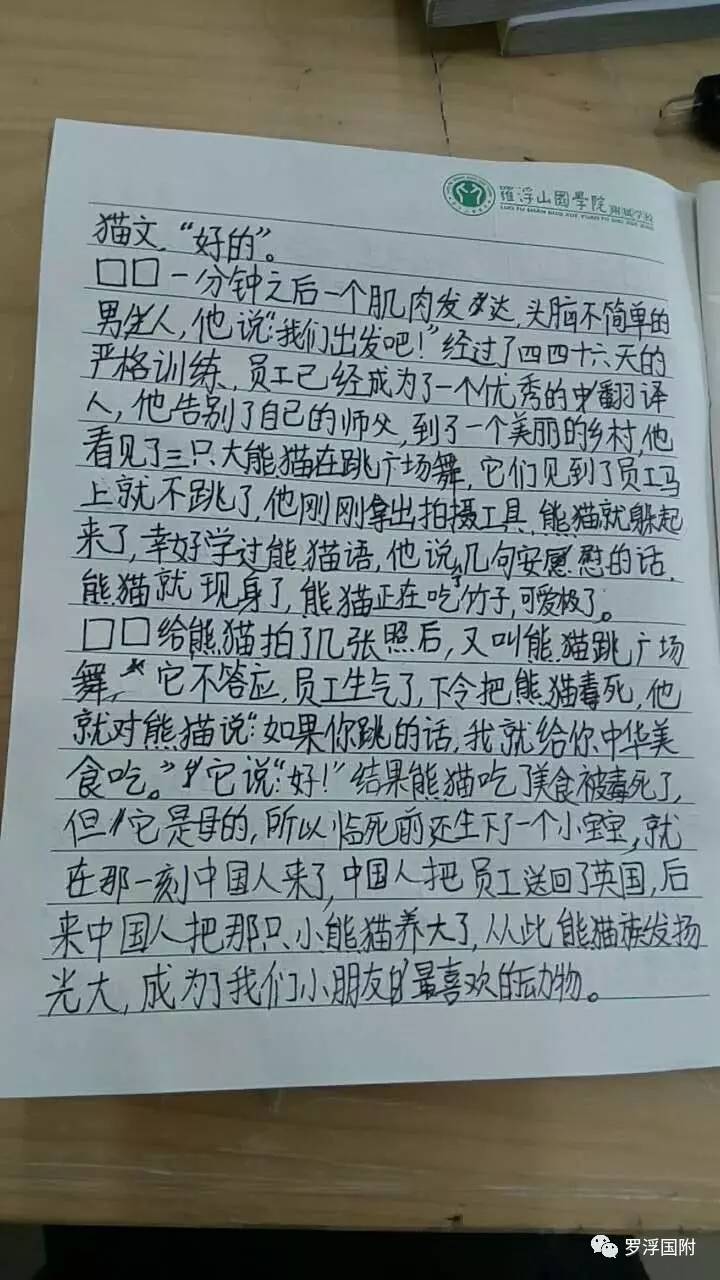 羅浮山國學院附属学校
LUO FU SHAN GUO XUE YUAN FU SHU XUE XIAO
猫文,“好的”。
□□一分钟之后一个肌肉发达,头脑不简单的
男人,他说“我们出发吧!”经过了四四十六天的
严格训练,员工已经成为了一个优秀的翻译
人,他告别了自己的师父,到了一个美丽的乡村,他
看见了三只大熊猫在跳广场舞,它们见到了员工马
上就不跳了,他刚刚拿出拍摄工具,熊猫就躲起
来了,幸好学过能猫语,他说了几句安慰的话,
熊猫就现身了,熊猫正在吃竹子,可爱极了。
□□给熊猫拍了几张照后,又叫熊猫跳广场
舞,它不答应,员工生气了,下令把熊猫毒死,他
就对熊猫说“如果你跳的话,我就给你中华美
食吃。”它说“好!”结果熊猫吃了美食被毒死了,
但它是母的,所以临死前还生下了一个小宝宝,就
在那一刻中国人来了,中国人把员工送回了英国,后
来中国人把那只小熊猫养大了,从此熊猫族发扬
光大,成为了我们小朋友的最喜欢的动物。
罗浮国附